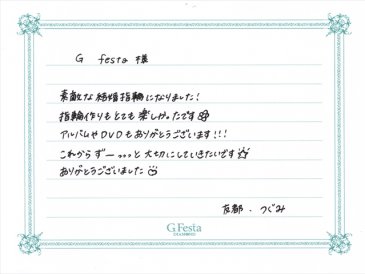 G festa 様
素敵な結婚指輪になりました！
指輪作りもとても楽しかったです
アルバムやDVDもありがとうございます！！！
これからずーっっっと大切にしていきたいです
ありがとうございました
友都 . つぐみ
G.Festa
DIAMOND